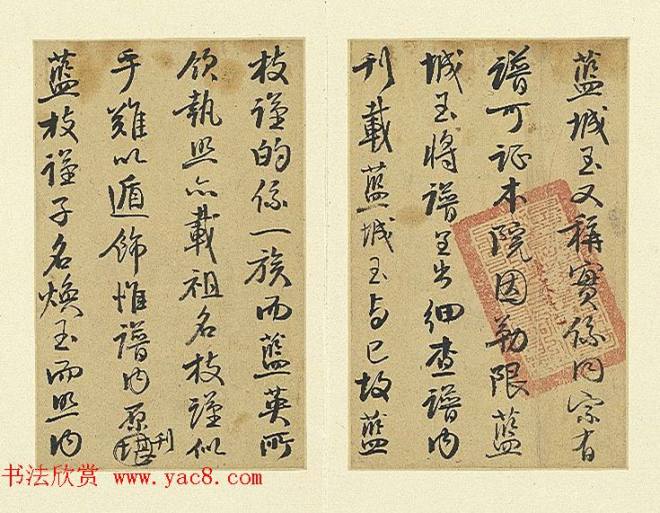 蓝城玉又稱實係同宗有
譜可证本院因勒限蓝
城玉将譜呈出细查譜内
刊載蓝城玉与已故蓝
枝谨的係一族而蓝英所
领執照亦載祖名枝谨似
乎難以遁飾惟譜内原刊
蓝枝谨子名焕玉而照内
书法欣赏 www.yac8.com